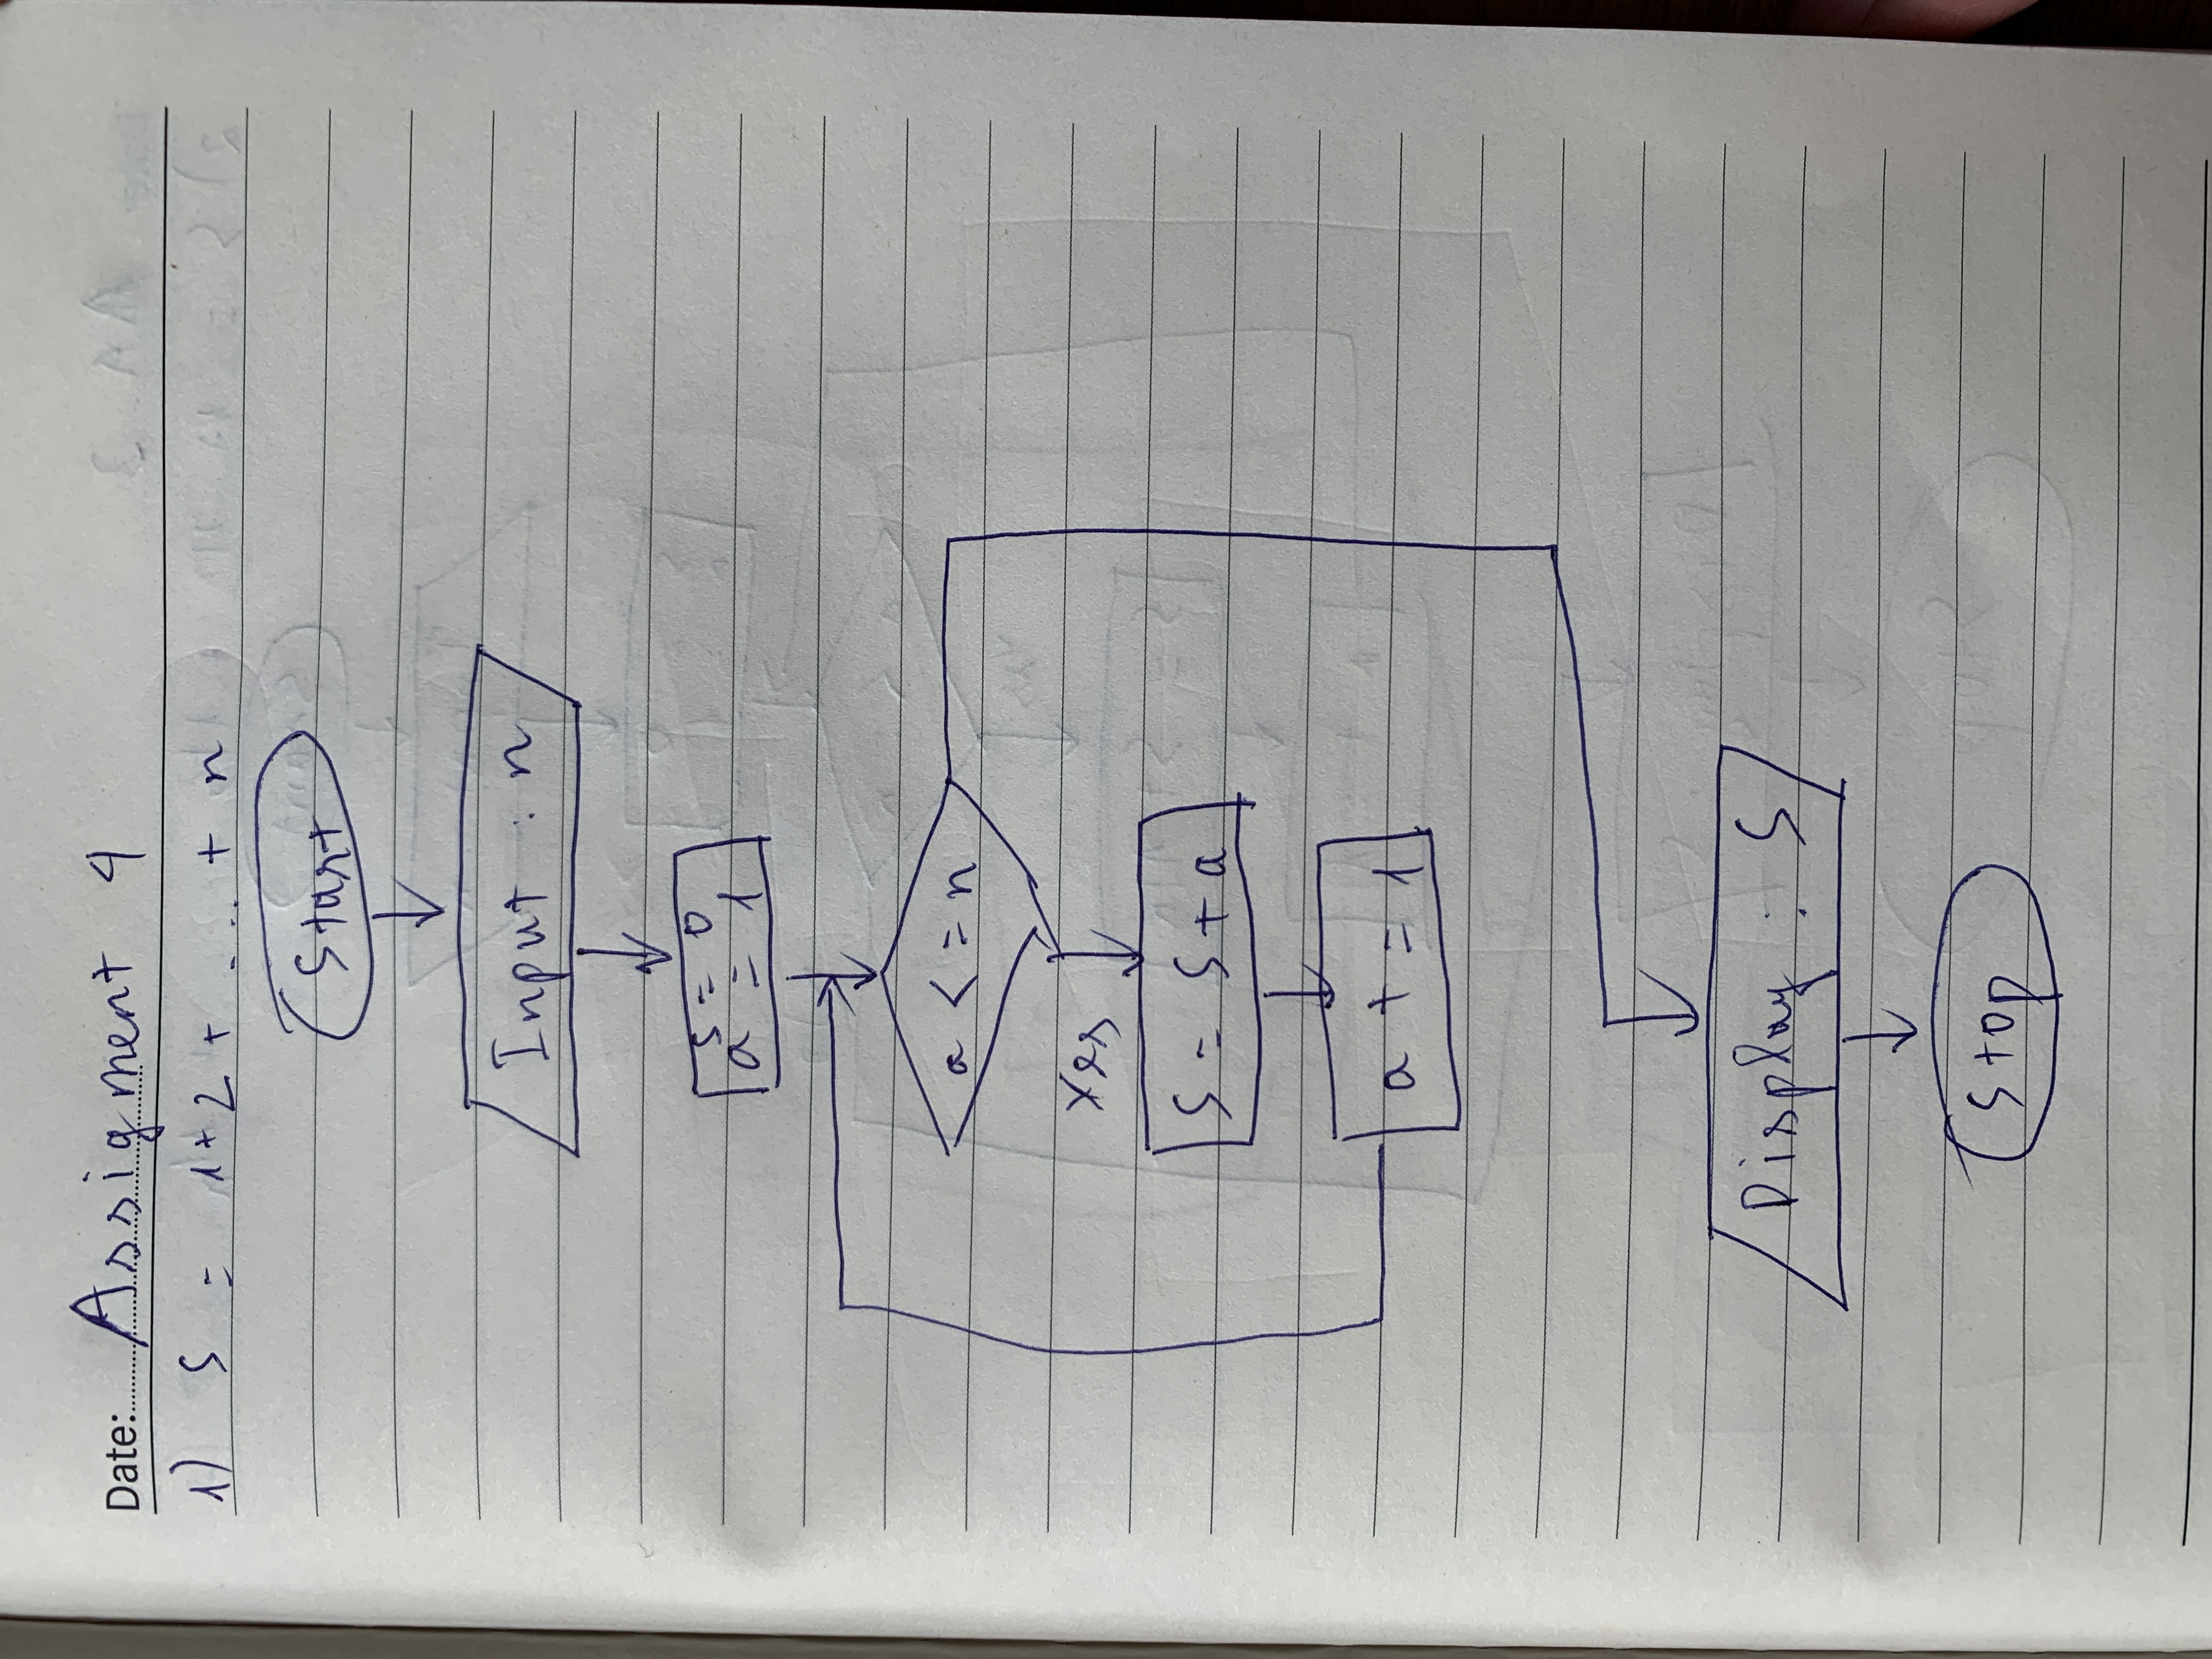 Date: Assigment 4
1) S = 1+2+ .... + n
Start
Input : n
s = 0
a = 1
a <= n
Yes
S = S + a
a += 1
Display : S
Stop